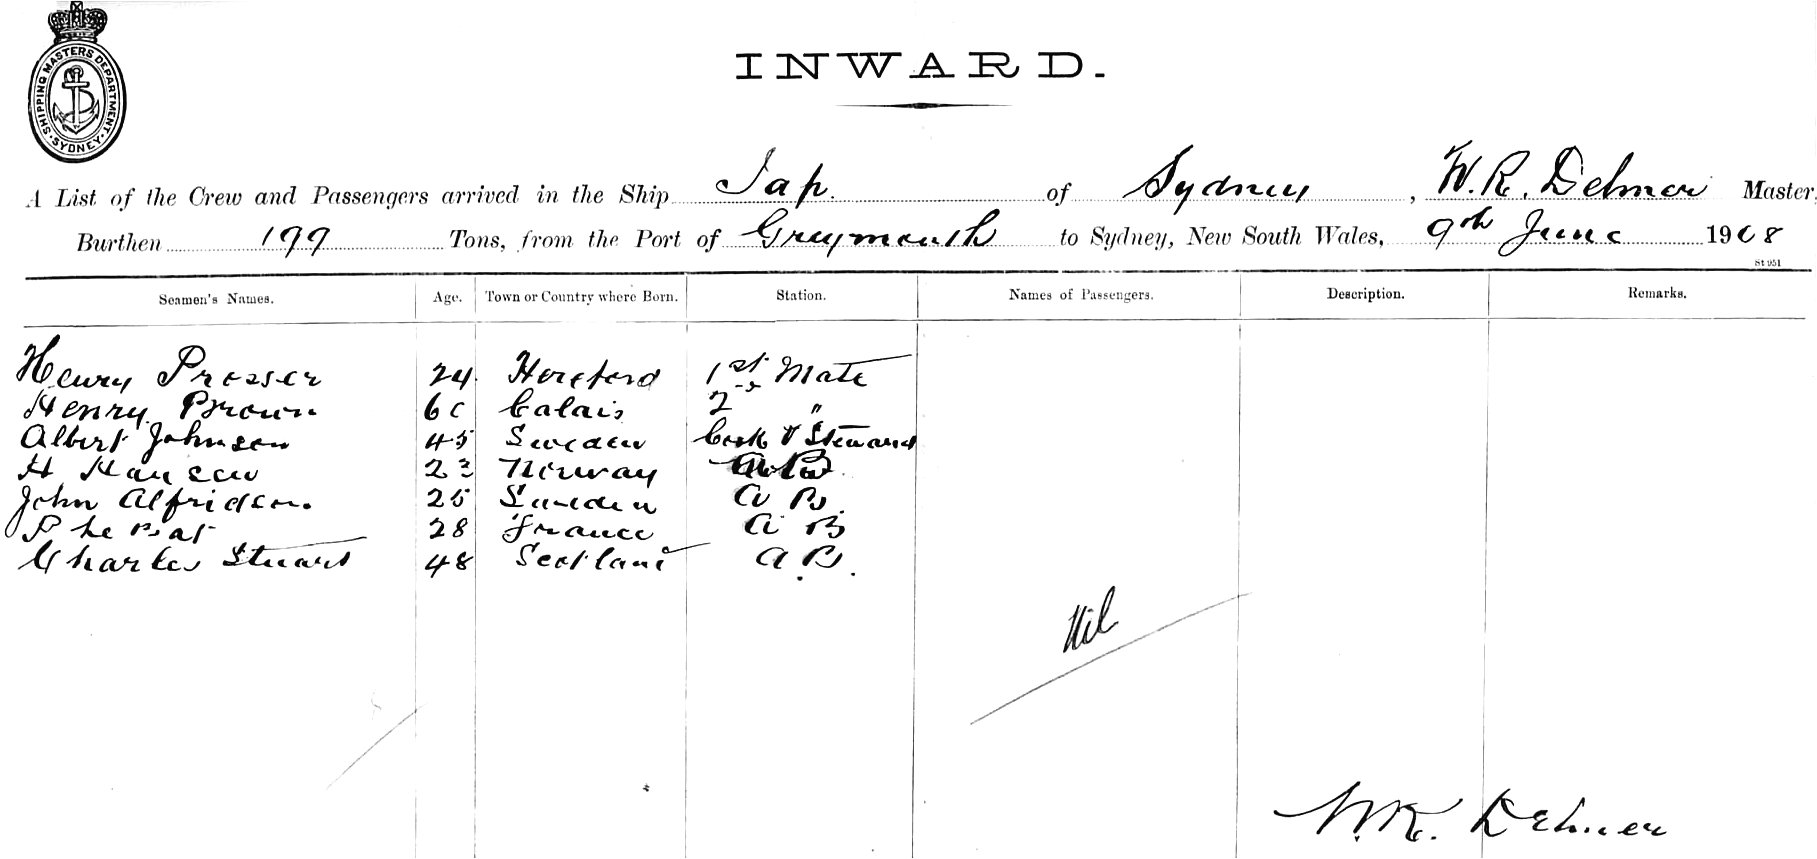 SHIPPING MASTERS DEPARTMENT. SYDNEY.
INWARD.
A List of the Crew and Passengers arrived in the Ship Jap. of Sydney, W. R. Delmer Master,
Burthen 199 Tons, from the Port of Greymouth to Sydney, New South Wales, 9th June 1908
St 951
Seamen's Names. Age. Town or Country where Born. Station. Names of Passengers. Description. Remarks.
Henry Prosser 24 Hereford 1st Mate
Henry Brown 60 Calais 2nd "
Albert Johnson 45 Sweden Cook & Steward
H Hansen 23 Norway A B
John Alfridson. 25 Sweden A B.
P Le Bat 28 France A B
Charles Stuart 48 Scotland A.B.
Nil
W.R. Delmer